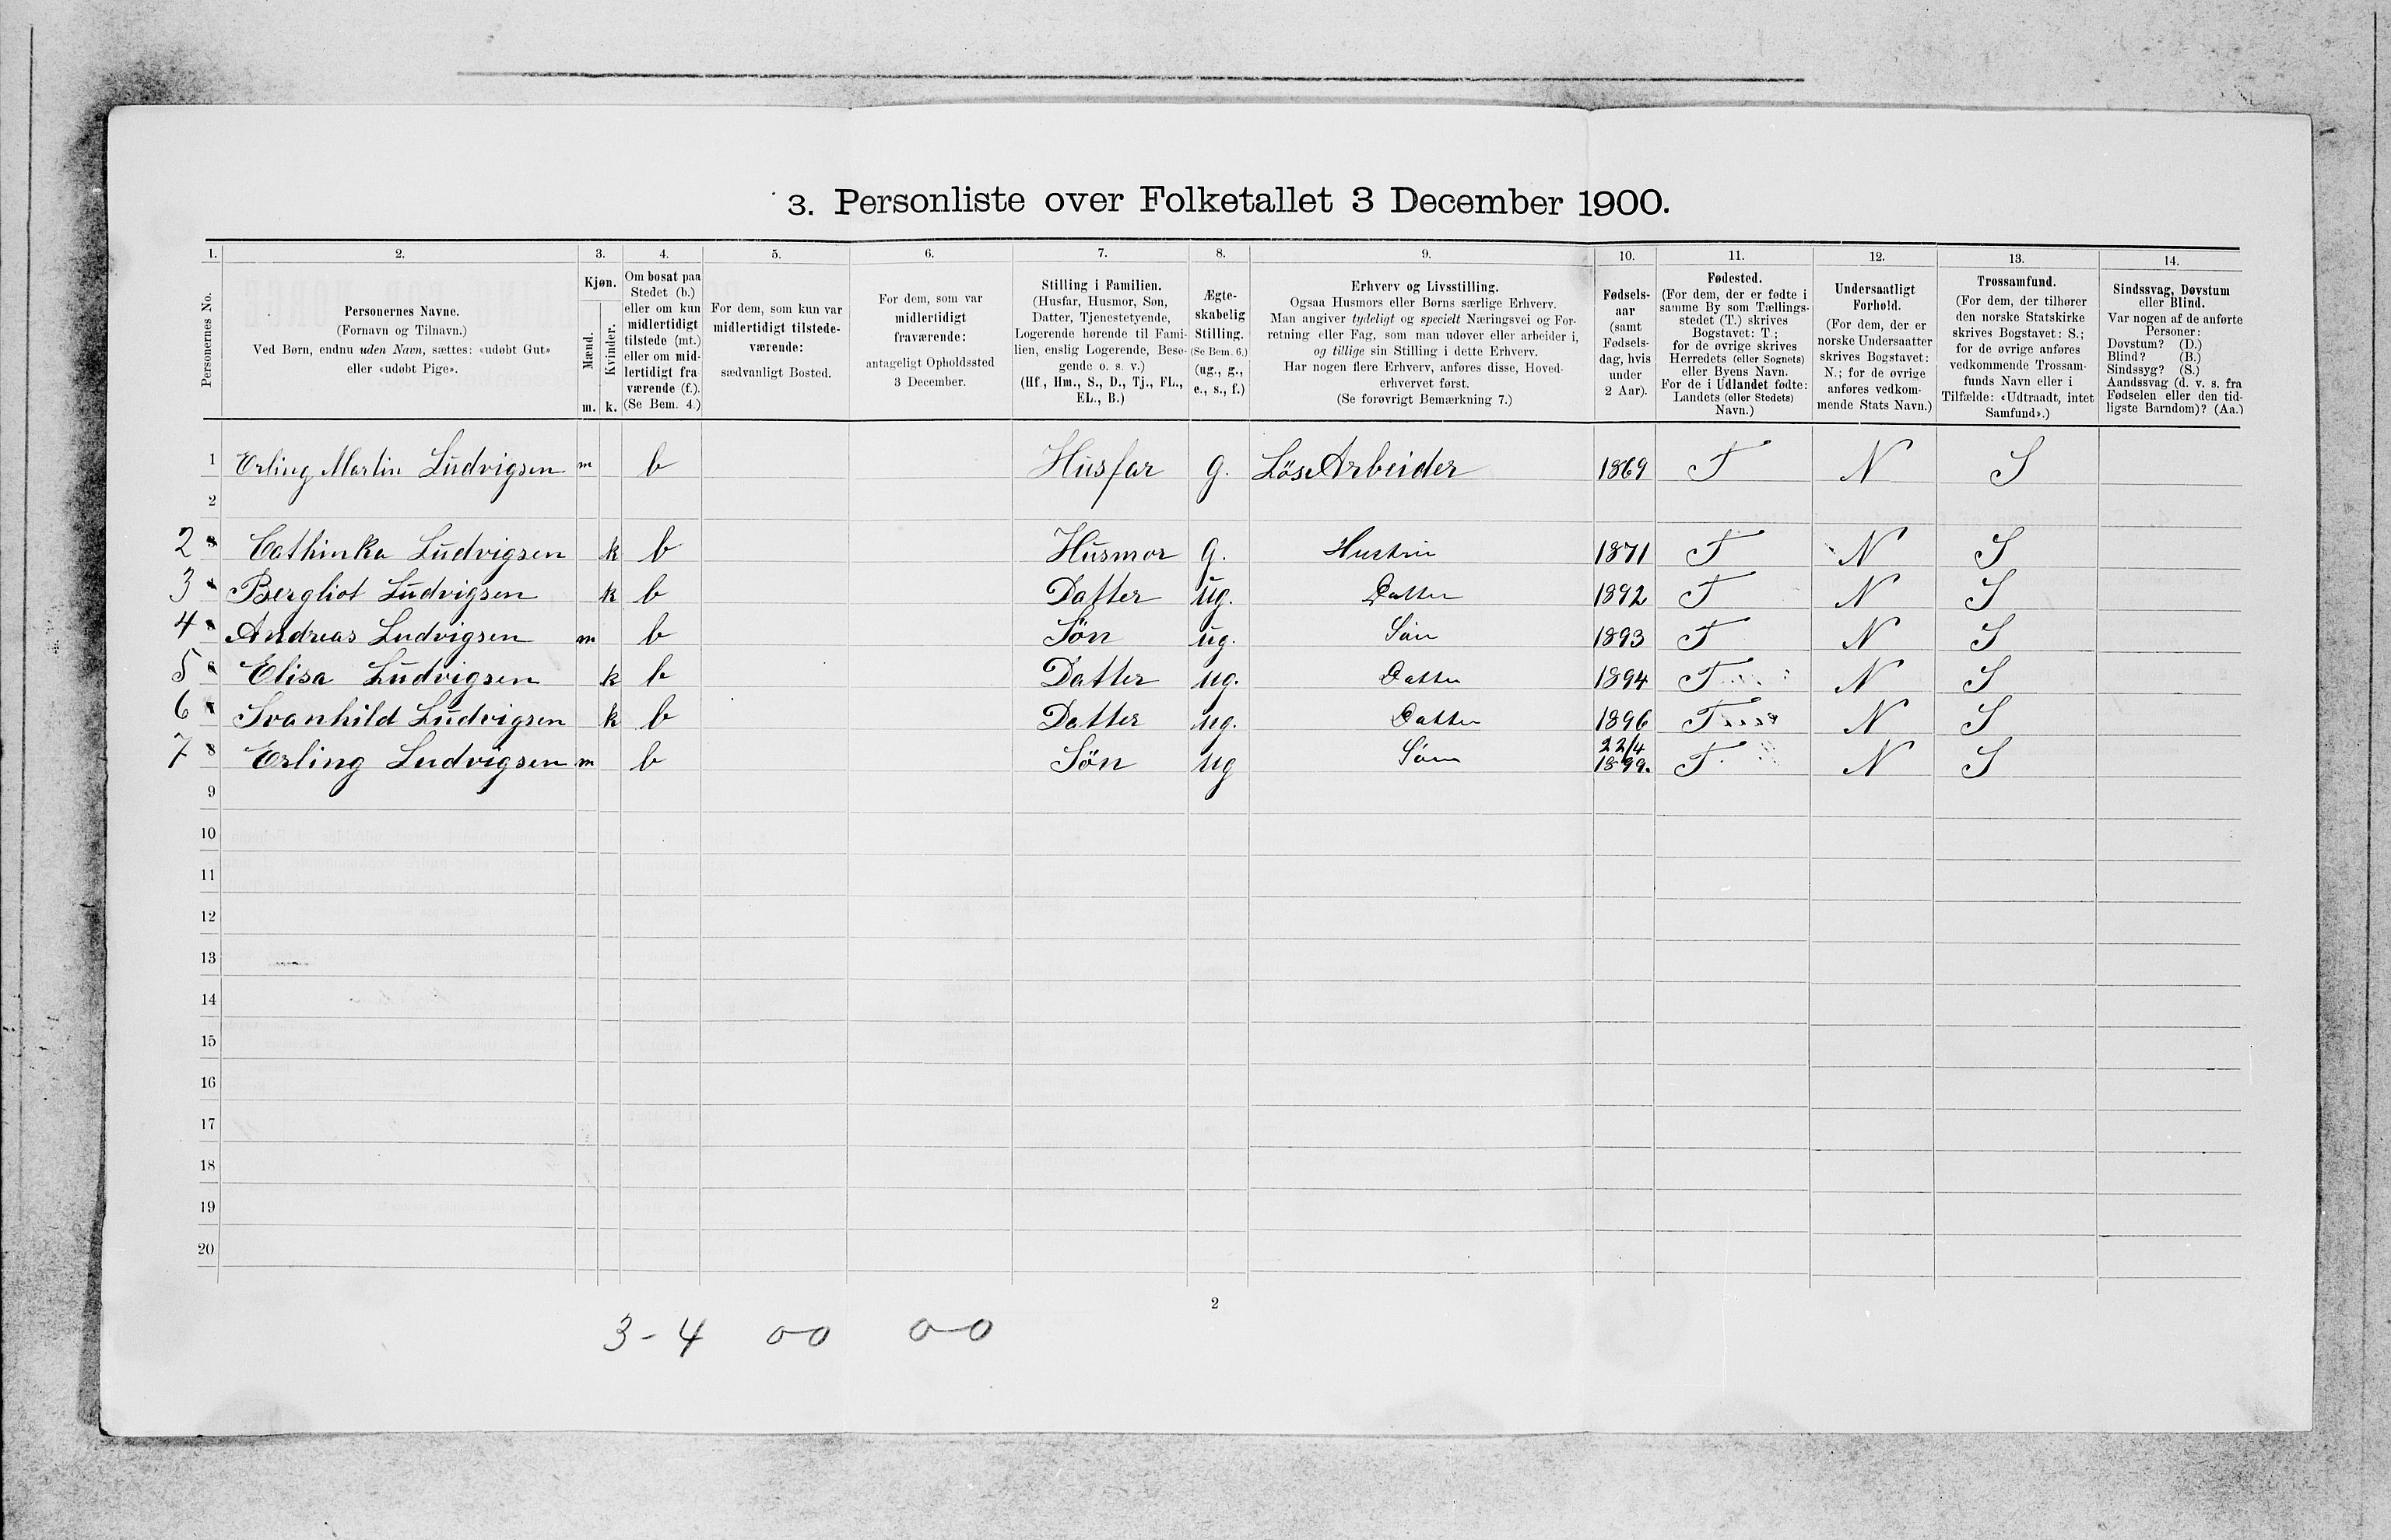 3. Personliste over Folketallet 3 December 1900.
1. 2. 3. 4. 5. 6. 7. 8. 9. 10. 11. 12. 13. 14.
Personernes No.
Personernes Navne.
(Fornavn og Tilnavn.)
Ved Børn, endnu uden Navn, sættes: «udøbt Gut»
eller «udøbt Pige».
Kjøn.
Mænd.
Kvinder.
m. k.
Om bosat paa
Stedet (b.)
eller om kun
midlertidigt
tilstede (mt.)
eller om mid-
lertidigt fra-
værende (f.).
(Se Bem. 4.)
For dem, som kun var
midlertidigt tilstede-
værende:
sædvanligt Bosted.
For dem, som var
midlertidigt
fraværende:
antageligt Opholdssted
3 December.
Stilling i Familien.
(Husfar, Husmor, Søn,
Datter, Tjenestetyende,
Logerende hørende til Fami-
lien, enslig Logerende, Besø-
gende o. s. v.)
(Hf., Hm., S., D., Tj., FL.,
EL., B.)
Ægte-
skabelig
Stilling.
(Se Bem. 6.)
(ug., g.,
e., s., f.)
Erhverv og Livsstilling.
Ogsaa Husmors eller Børns særlige Erhverv.
Man angiver tydeligt og specielt Næringsvei og For-
retning eller Fag, som man udøver eller arbeider i,
og tillige sin Stilling i dette Erhverv.
Har nogen flere Erhverv, anføres disse, Hoved-
erhvervet først.
(Se forøvrigt Bemærkning 7.)
Fødsels-
aar
(samt
Fødsels-
dag, hvis
under
2 Aar).
Fødested.
(For dem, der er fødte i
samme By som Tællings-
stedet (T.) skrives
Bogstavet: T.;
for de øvrige skrives
Herredets (eller Sognets)
eller Byens Navn.
For de i Udlandet fødte:
Landets (eller Stedets)
Navn.)
Undersaatligt
Forhold.
(For dem, der er
norske Undersaatter
skrives Bogstavet:
N.; for de øvrige
anføres vedkom-
mende Stats Navn.)
Trossamfund.
(For dem, der tilhører
den norske Statskirke
skrives Bogstavet: S.;
for de øvrige anføres
vedkommende Trossam-
funds Navn eller i
Tilfælde: «Udtraadt, intet
Samfund».)
Sindssvag, Døvstum
eller Blind.
Var nogen af de anførte
Personer:
Døvstum? (D.)
Blind? (B.)
Sindssyg? (S.)
Aandssvag (d. v. s. fra
Fødselen eller den tid-
ligste Barndom)? (Aa.)
1 Erling Martin Ludvigsen m b Husfar g. Løse Arbeider 1869 T N S
2
2 Cathinka Ludvigsen k b Husmor g. Hustru 1871 T N S
3 Bergliot Ludvigsen k b Datter ug. Datter 1892 T N S
4 Andreas Ludvigsen m b Søn ug. Søn 1893 T N S
5 Elisa Ludvigsen k b Datter ug. Datter 1894 T N S
6 Svanhild Ludvigsen k b Datter ug. Datter 1896 T N S
7 8 Erling Ludvigsen m b Søn ug Søn 22/4 1899. T N S
9
10
11
12
13
14
15
16
17
18
19
20
2
3-4 0-0 0-0